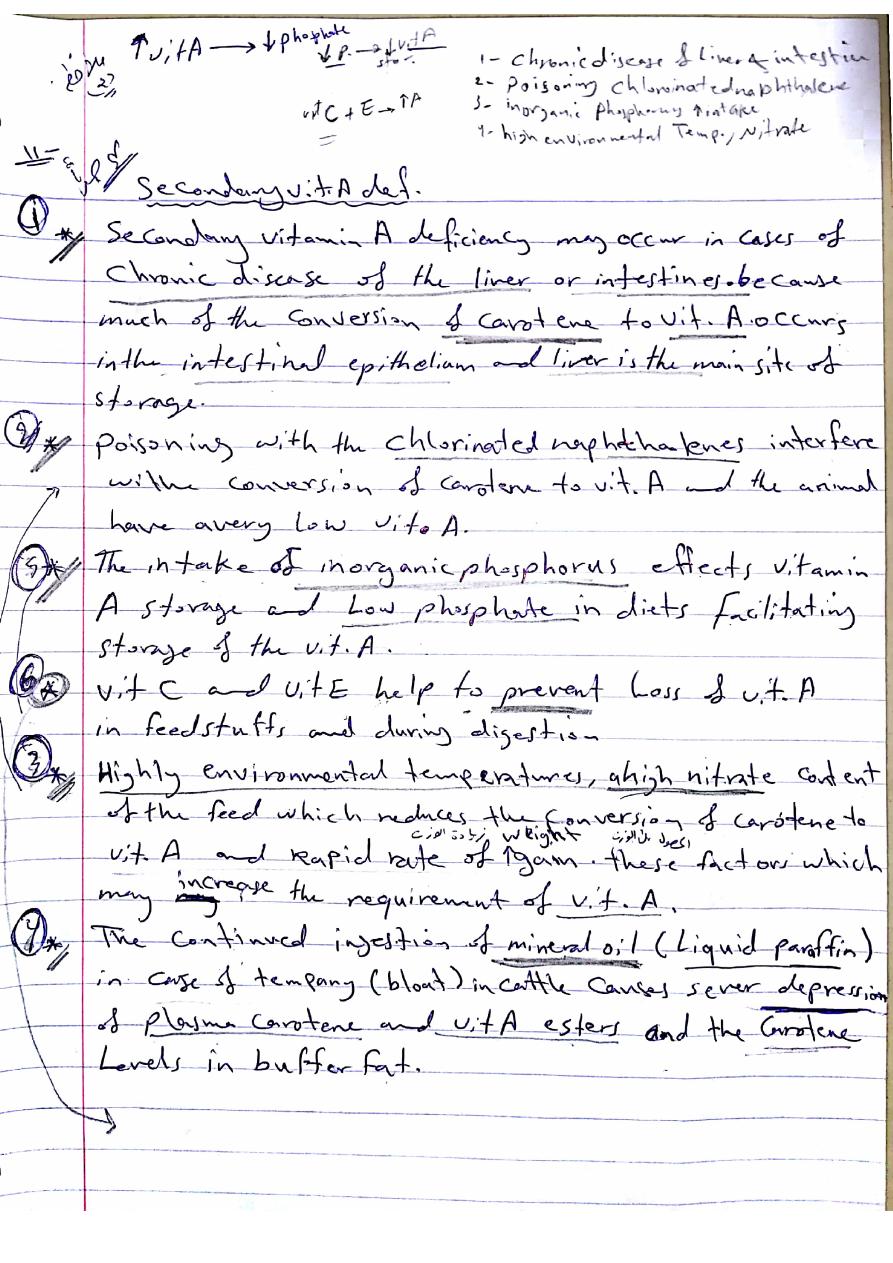 ↑vitA → ↓phosphate
↓P. → ↓vitA
sto.
vit C + E → ↑A
1- chronic disease of liver & intestin
2- Poisoning chlorinatednaphthalene
3- inorganic phosphorus ↑intake
4- high environmental Temp., Nitrate
Secondary vit. A def.
1 * Secondary vitamin A deficiency may occur in cases of
Chronic disease of the liver or intestines. because
much of the conversion of carotene to vit. A. occurs
in the intestinal epithelium and liver is the main site of
storage.
* poisoning with the chlorinated naphthalenes interfere
withe conversion of carotene to vit. A and the animal
have avery low vit. A.
* The intake of inorganic phosphorus effects vitamin
A storage and Low phosphate in diets facilitating
storage of the vit. A.
6 * vit C and vit E help to prevent Loss of vit. A
in feedstuffs and during digestion
3 * Highly environmental temperatures, ahigh nitrate content
of the feed which reduces the conversion of carotene to
زيادة الوزن weight
vit. A and Rapid rate of ↑gain. these factors which
may increase the requirement of vit. A.
* The continued ingestion of mineral oil (Liquid paraffin)
in case of tempany (bloat) in cattle causes sever depression
of plasma carotene and vit A esters and the Carotene
Levels in buffer fat.